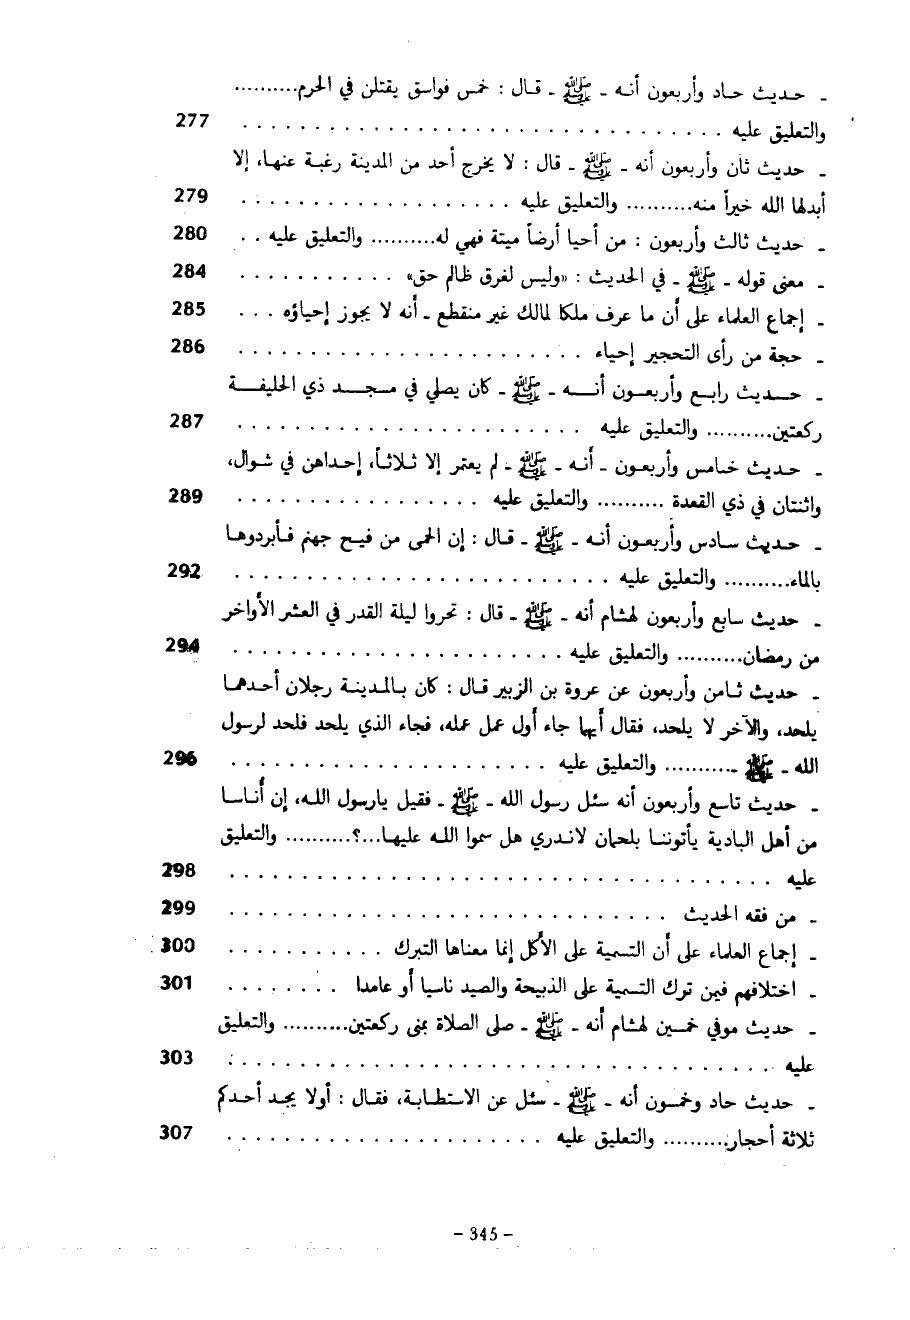 - حديث حاد وأربعون أنه - ﷺ - قال : خمس فواسق يقتلن في الحرم..........
والتعليق عليه . . . . . . . . . . . . . . . . . . . . . . . . . . . . . . . . . 277
- حديث ثان وأربعون أنه - ﷺ - قال : لا يخرج أحد من المدينة رغبة عنها، إلا
أبدلها الله خيراً منه.......... والتعليق عليه . . . . . . . . . . . . . . . . . . . 279
- حديث ثالث وأربعون : من أحيا أرضاً ميتة فهي له.......... والتعليق عليه . . 280
- معنى قوله - ﷺ - في الحديث : «وليس لغرق ظالم حق» . . . . . . . . . . . 284
- إجماع العلماء على أن ما عرف ملكا لمالك غير منقطع - أنه لا يجوز إحياؤه . . . 285
- حجة من رأى التحجير إحياء . . . . . . . . . . . . . . . . . . . . . . . . 286
- حـــديث رابـــع وأربعـــون أنـــه - ﷺ - كان يصلي في مـسجـــد ذي الحليفـــة
ركعتين.......... والتعليق عليه . . . . . . . . . . . . . . . . . . . . . . . . 287
- حديث خامس وأربعون - أنه - ﷺ - لم يعتمر إلا ثلاثاً، إحداهن في شوال،
واثنتان في ذي القعدة .......... والتعليق عليه . . . . . . . . . . . . . . . . . 289
- حديث سادس وأربعون أنه - ﷺ - قال : إن الحمى من فيح جهنم فأبردوها
بالماء.......... والتعليق عليه . . . . . . . . . . . . . . . . . . . . . . . . . . 292
- حديث سابع وأربعون لهشام أنه - ﷺ - قال : تحروا ليلة القدر في العشر الأواخر
من رمضان.......... والتعليق عليه . . . . . . . . . . . . . . . . . . . . . . . 294
- حديث ثامن وأربعون عن عروة بن الزبير قال : كان بالمدينة رجلان أحدهما
يلحد، والآخر لا يلحد، فقال أيها جاء أول عمل عمله، فجاء الذي يلحد فلحد لرسول
الله - ﷺ - .......... والتعليق عليه . . . . . . . . . . . . . . . . . . . . . . 296
- حديث تاسع وأربعون أنه سئل رسول الله - ﷺ - فقيل يارسول الله، إن أناسا
من أهل البادية يأتوننا بلحمان لاندري هل سموا الله عليها...؟.......... والتعليق
عليه . . . . . . . . . . . . . . . . . . . . . . . . . . . . . . . . . . . . . 298
- من فقه الحديث . . . . . . . . . . . . . . . . . . . . . . . . . . . . . . 299
- إجماع العلماء على أن التسمية على الأكل إنما معناها التبرك . . . . . . . . . . . 300
- اختلافهم فيمن ترك التسمية على الذبيحة والصيد ناسيا أو عامدا . . . . . . . . 301
- حديث موفي خمسين لهشام أنه - ﷺ - صلى الصلاة بمنى ركعتين.......... والتعليق
عليه . . . . . . . . . . . . . . . . . . . . . . . . . . . . . . . . . . . . . 303
- حديث حاد وخمسون أنه - ﷺ - سئل عن الاستطابة، فقال : أولا يجد أحدكم
ثلاثة أحجار.......... والتعليق عليه . . . . . . . . . . . . . . . . . . . . . . 307
- 345 -